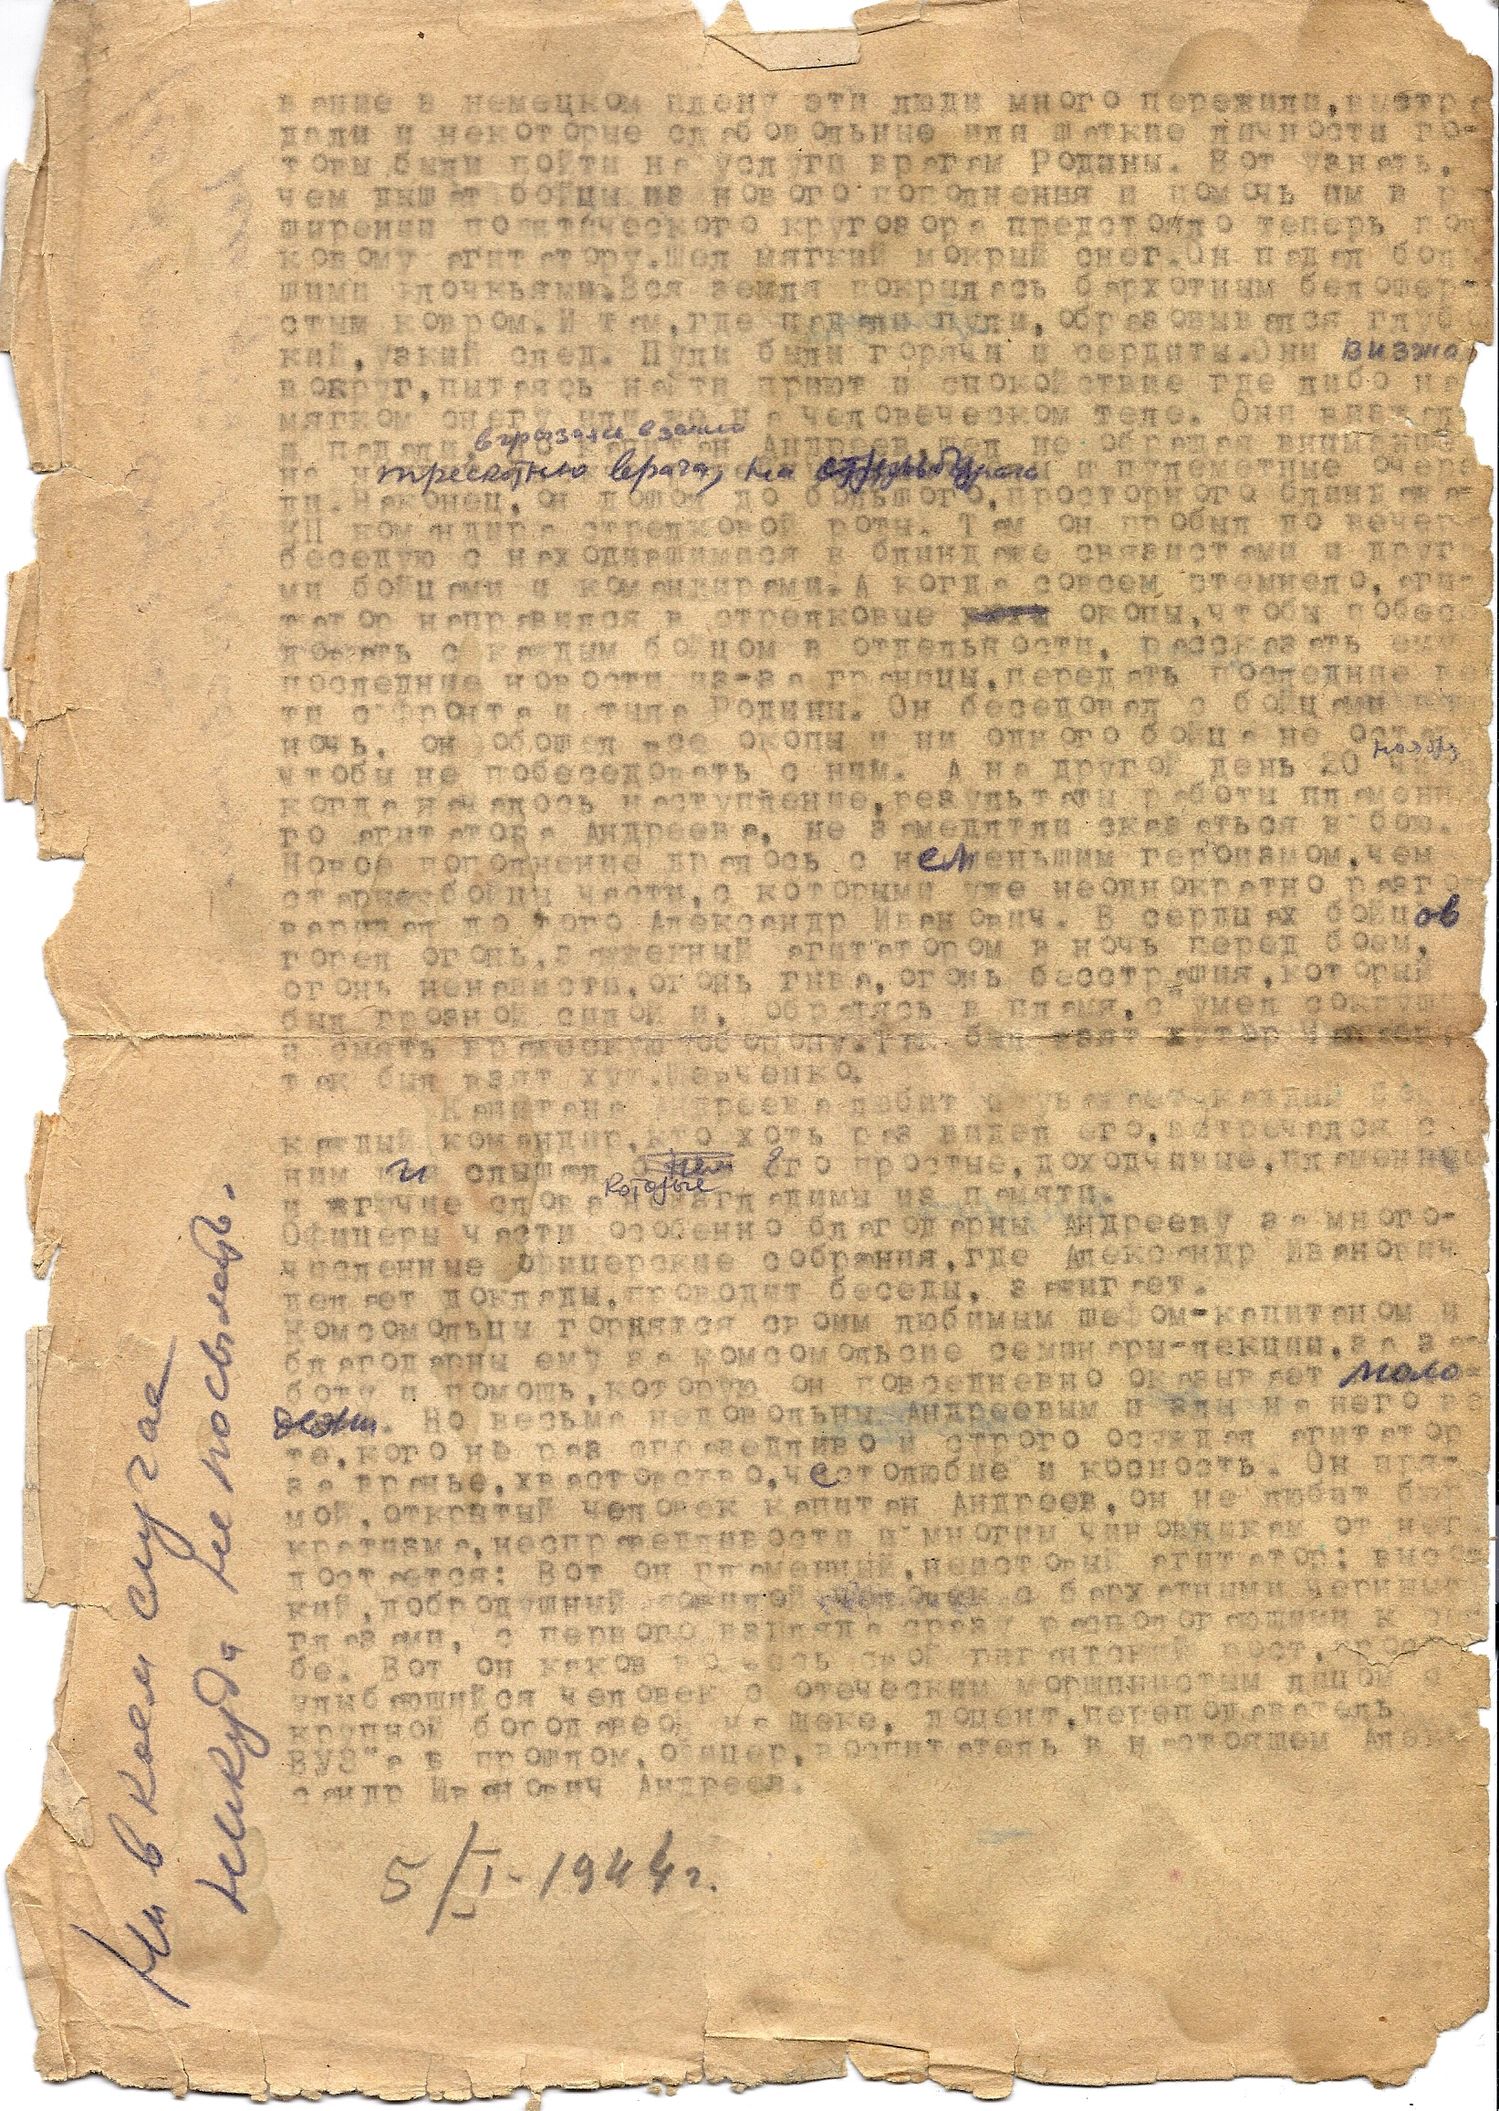 вание в немецком плену эти люди много пережили, выстр
дали и некоторые слабовольные или шаткие личности го-
товы были пойти на услуги врагам Родины. Вот узнать,
чем дышат бойцы из нового пополнения и помочь им в р
ширении политического кругозора предстояло теперь пол
ковому агитатору. Шел мягкий мокрый снег. Он падал боль
шими клочьями. Вся земля покрылась бархотным белошер-
стым ковром. И там, где падали пули, образовывался глубо
кий, узкий след. Пули были горячи и сердиты. Они визжа
вокруг, пытаясь найти приют и спокойствие где либо на
мягком снегу или же на человеческом теле. Они визжал
вгрызался в землю
и падали, а капитан Андреев шел не обращая внимания
на трескотню врага, на и пулеметные очере
ди. Наконец, он дошел до большого, просторного блиндажа-
КП командира стрелковой роты. Там он пробыл до вечера
беседую с находившимися в блиндаже связистами и други
ми бойцами и командирами. А когда совсем стемнело, аги-
татор направился в стрелковые окопы, чтобы побес
довать с каждым бойцом в отдельности, рассказать ему
последние новости из-за границы, передать последние ве
ти с фронта и тыла Родины. Он беседовал с бойцами
ночь, он обошел все окопы и ни одного бойца не
ноября
чтобы не побеседовать с ним. А на другой день 20
когда началось наступление, результаты работы пламенн
го агитатора Андреева, не замедлили сказаться в бою.
Новое пополнение дралось с не меньшим героизмом, чем
старые бойцы части, с которыми уже неоднократно разго
варивал до того Александр Иванович. В сердцах бойцов
горел огонь, зажженный агитатором в ночь перед боем,
огонь ненависти, огонь гнева, огонь бесстрашия, который
был грозной силой и, обратясь в пламя, с"умел сокруш
и смять вражескую оборону. Так был взят хутор
так был взят хут. Шевченко.
Капитана Андреева любит и уважает каждый боец
каждый командир, кто хоть раз видел его, встречался с
ним и слышал его простые, доходчивые, пламенные
которые
и жгучие слова незагладимы из памяти.
Офицеры части особенно благодарны Андрееву за много-
численные офицерские собрания, где Александр Иванович
делает доклады, проводит беседы, зажигает.
Комсомольцы гордятся своим любимым шефом-капитаном и
благодарны ему за комсомольские семинары-лекции, за за-
боту и помощь, которую он повседневно оказывает моло-
дежи. Но весьма недовольны Андреевым и злы на него
те, кого не раз справедливо и строго осуждал агитатор
за вранье, хвастовство, честолюбие и косность. Он пря-
мой, открытый человек капитан Андреев, он не любит бюр
кратизма, несправедливости и многим чиновникам от него
достается: Вот он пламенный, неистовый агитатор: высо
кий, добродушный пожилой человек с бархатными черными
глазами, с первого взгляда сразу распологающими к
бе. Вот он каков во весь свой гигантский рост,
улыбающийся человек с отеческим морщинистым лицом с
крупной бородавкой на щеке, доцент, преподаватель
ВУЗ"а в прошлом, офицер, воспитатель в настоящем Алек
сандр Иванович Андреев.
5/I-1944г.
Ни в коем случае
никуда не посылать.